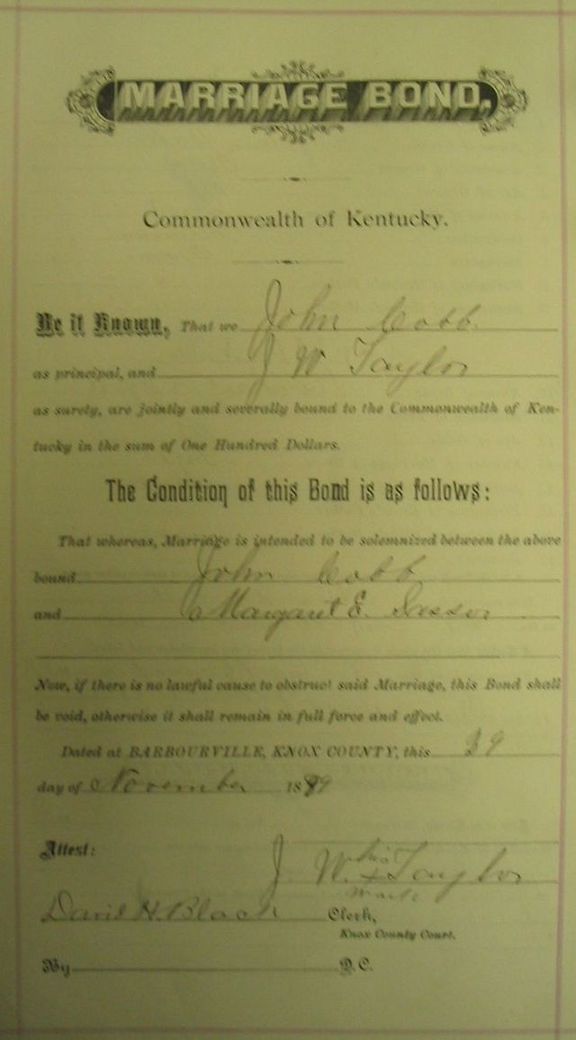 MARRIAGE BOND.
Commonwealth of Kentucky.
Be it Known, That we John Cobb
as principal, and J W Taylor
as surety, are jointly and severally bound to the Commonwealth of Ken-
tucky in the sum of One Hundred Dollars.
The Condition of this Bond is as follows:
That whereas, Marriage is intended to be solemnized between the above
bound John Cobb
and Margaret E.
Now, if there is no lawful cause to obstruct said Marriage, this Bond shall
be void, otherwise it shall remain in full force and effect.
Dated at BARBOURVILLE, KNOX COUNTY, this
day of November 18
Attest:
J. W. his x mark Taylor
David H. Black Clerk,
Knox County Court.
By D. C.